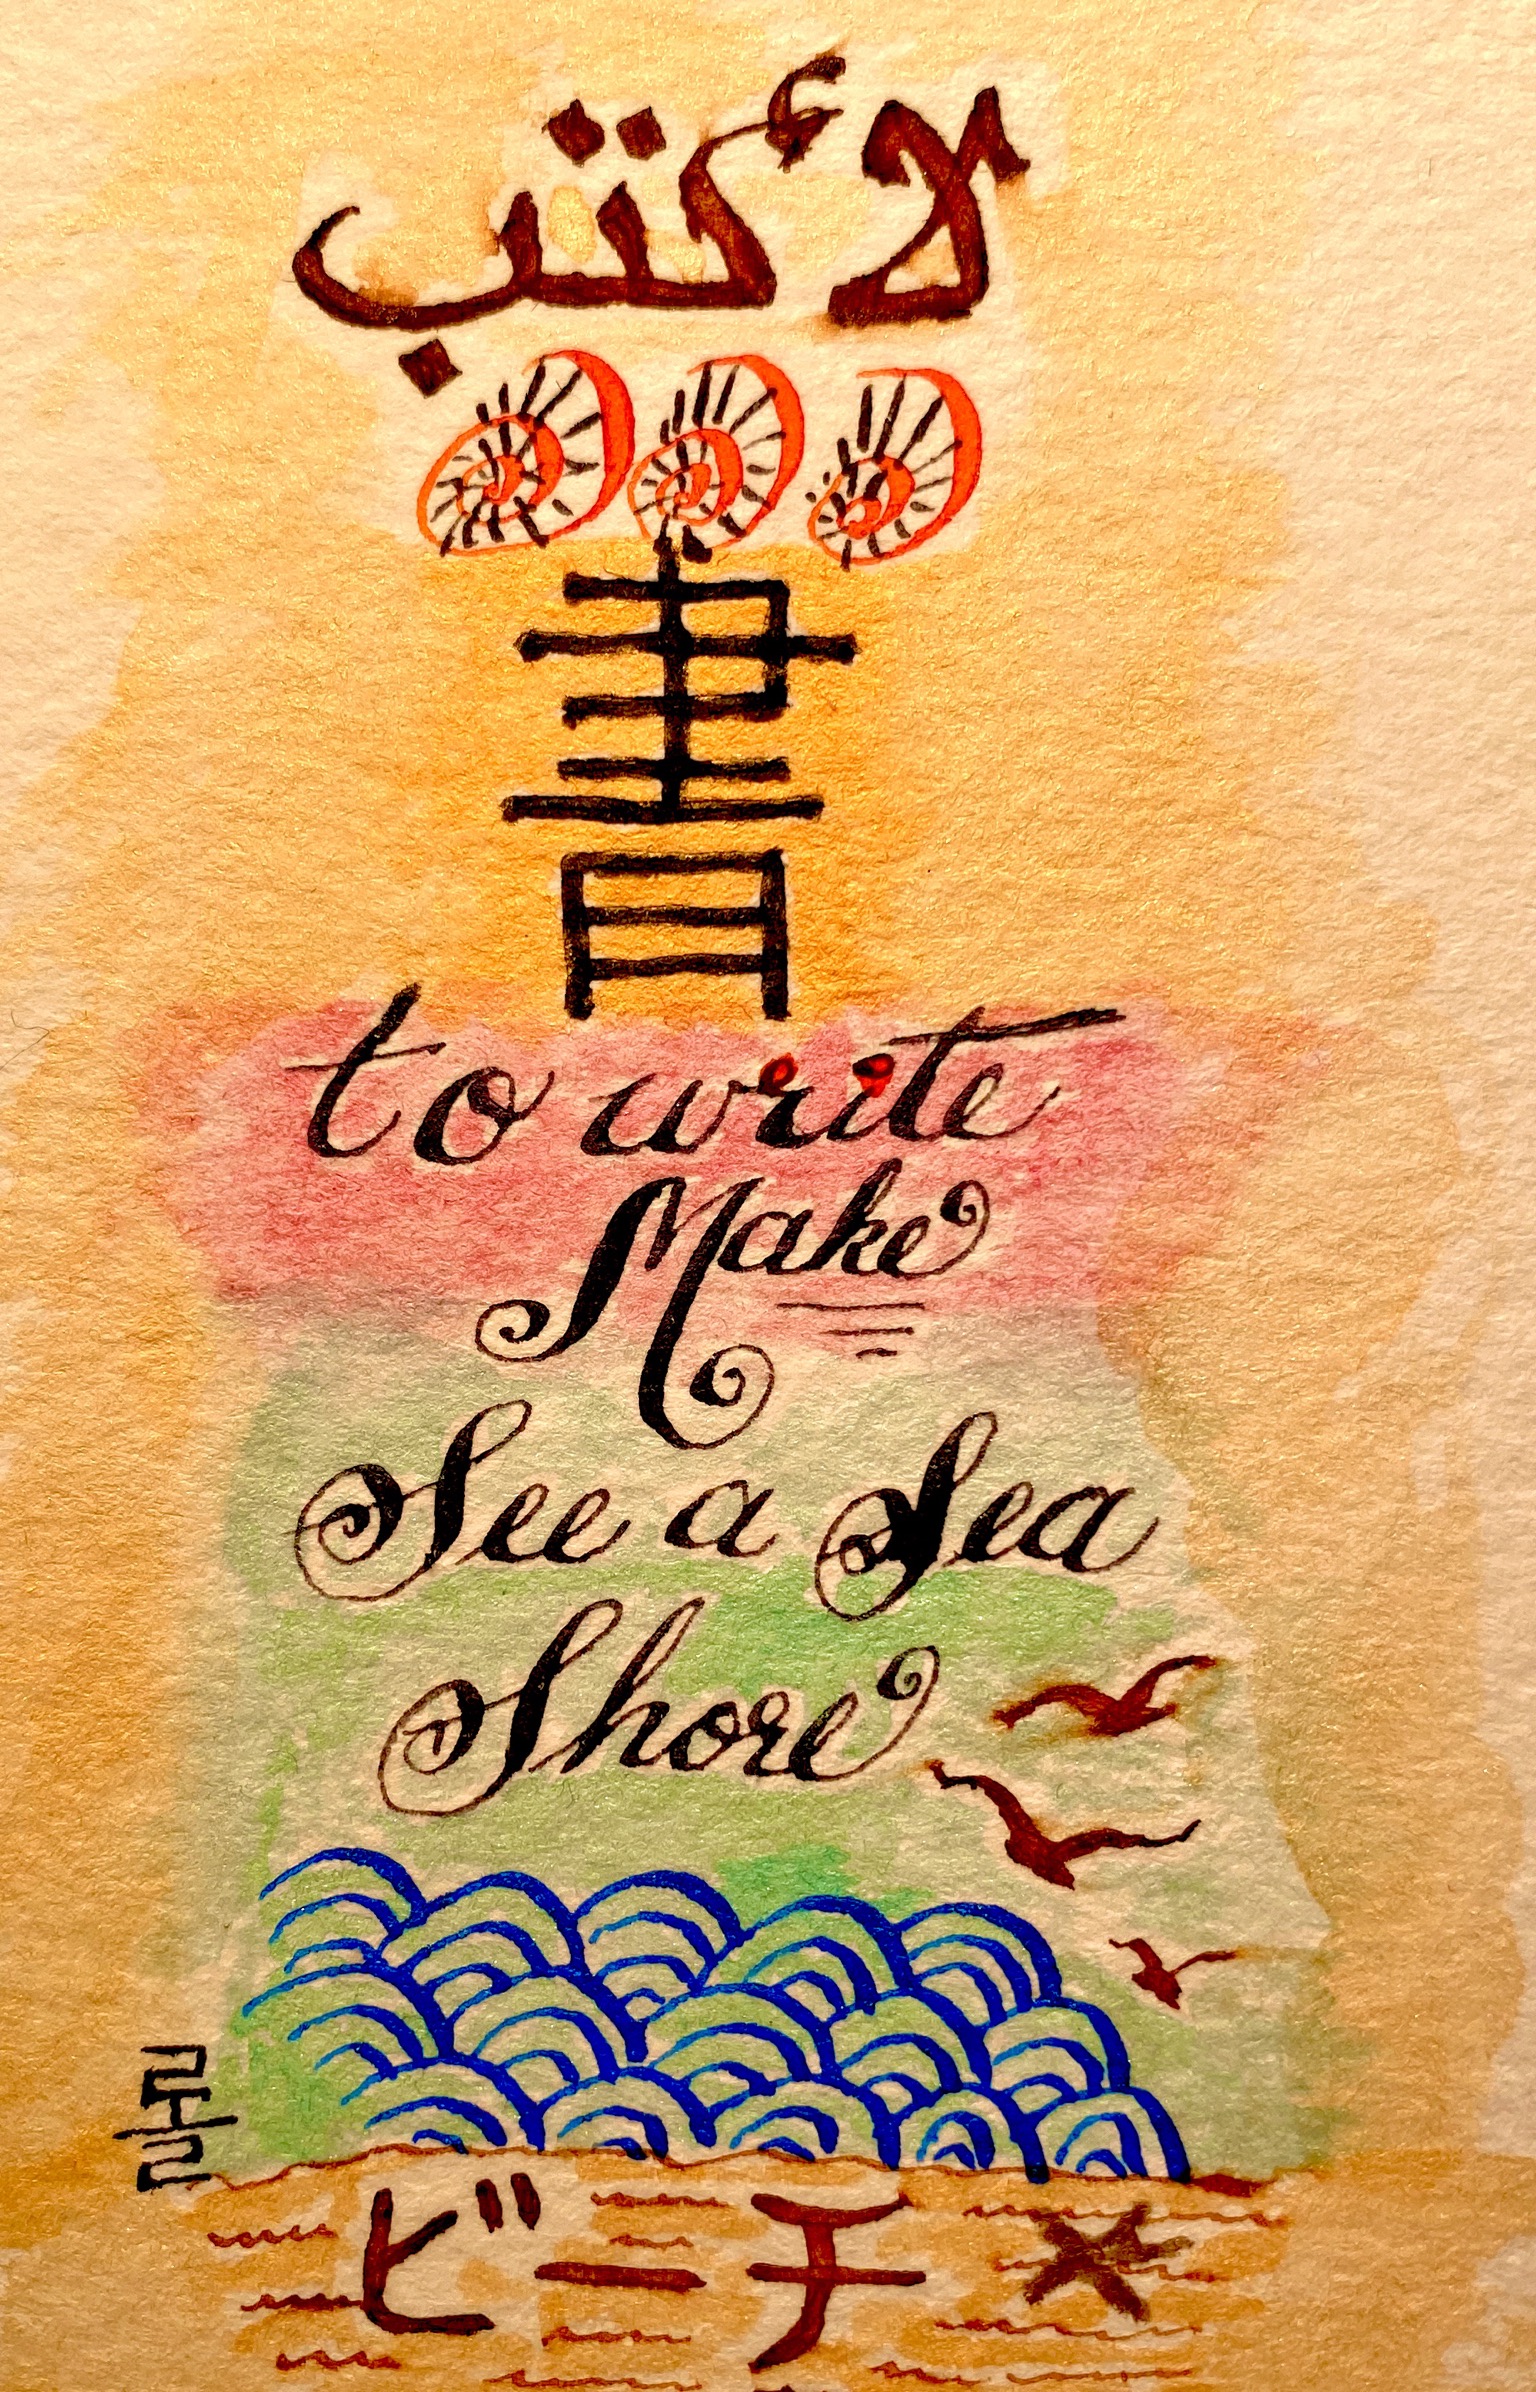 لأكتب
書
to write
Make
See a Sea
Shore
롤
ビーチ